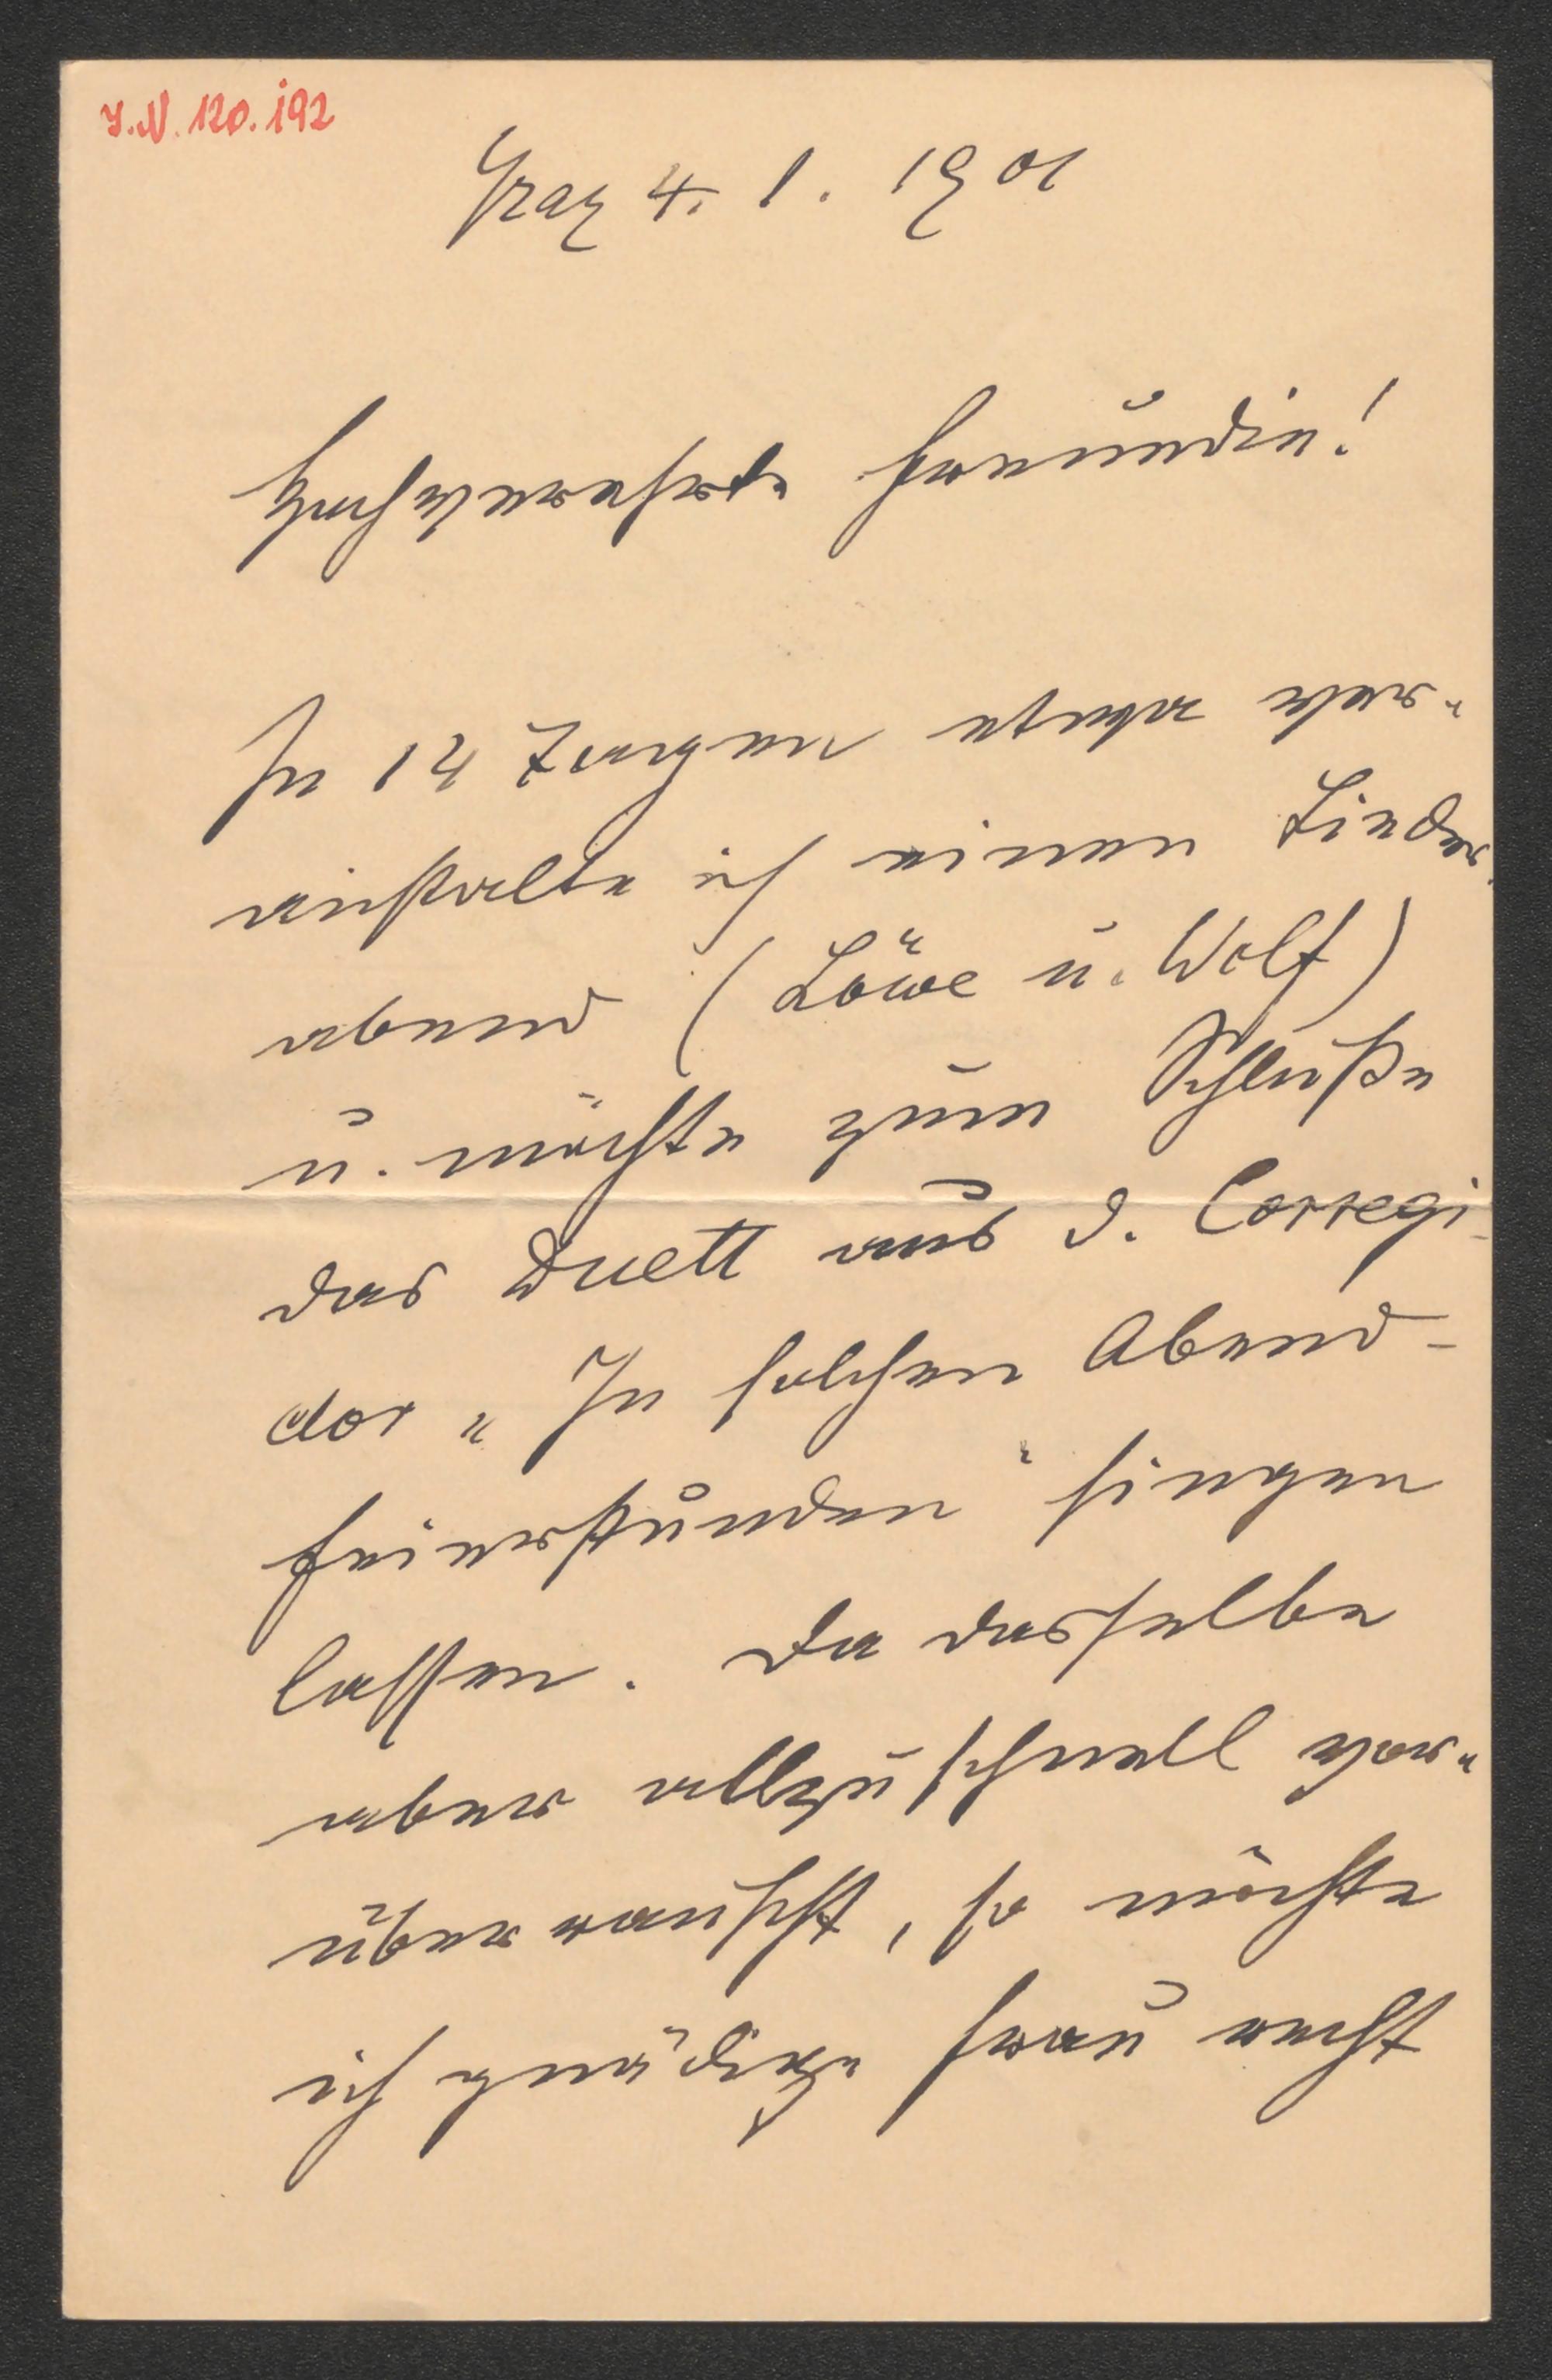 J.N. 120.192
Graz 4. 1. 1901
Hochverehrte Freundin!
In 14 Tagen etwa ver-
anstalte ich einen Lieder
abend (Löwe u. Wolf)
u. möchte zum Schluße
das Duett aus d. Corregi-
dor „In solchen Abend-
feierstunden" singen
lassen. Da dasselbe
aber allzuschnell vor-
überrauscht, so möchte
ich gnädige Frau recht